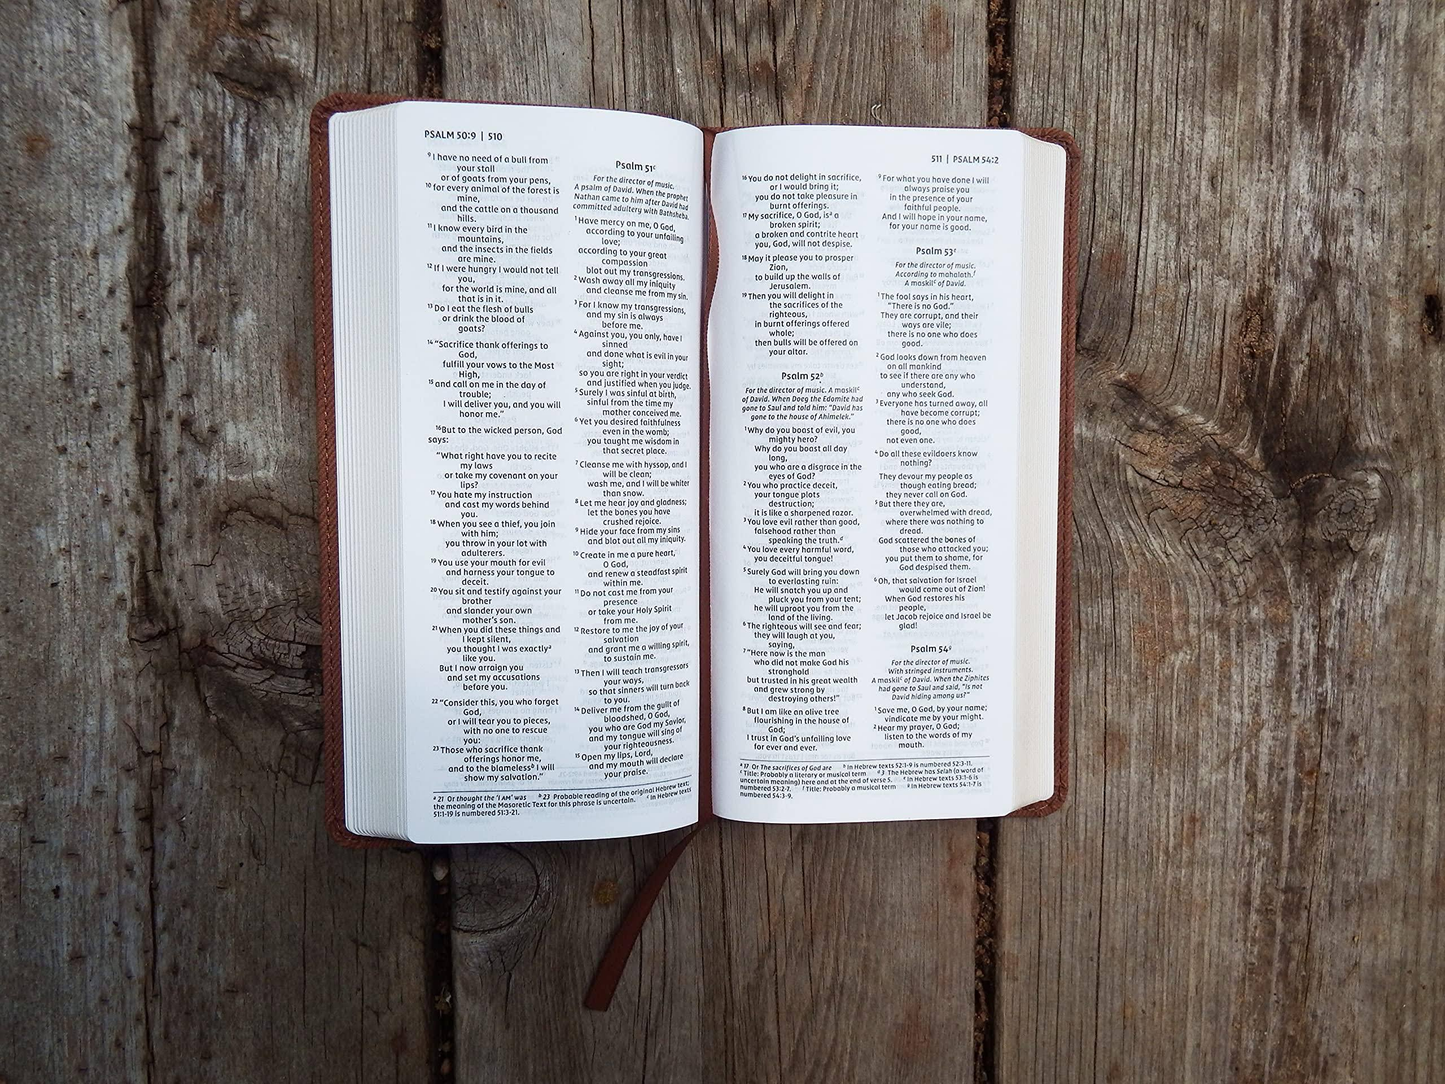 PSALM 50:9 | 510
⁹ I have no need of a bull from
your stall
or of goats from your pens,
¹⁰ for every animal of the forest is
mine,
and the cattle on a thousand
hills.
¹¹ I know every bird in the
mountains,
and the insects in the fields
are mine.
¹² If I were hungry I would not tell
you,
for the world is mine, and all
that is in it.
¹³ Do I eat the flesh of bulls
or drink the blood of
goats?
¹⁴ “Sacrifice thank offerings to
God,
fulfill your vows to the Most
High,
¹⁵ and call on me in the day of
trouble;
I will deliver you, and you will
honor me.”
¹⁶But to the wicked person, God
says:
“What right have you to recite
my laws
or take my covenant on your
lips?
¹⁷ You hate my instruction
and cast my words behind
you.
¹⁸ When you see a thief, you join
with him;
you throw in your lot with
adulterers.
¹⁹ You use your mouth for evil
and harness your tongue to
deceit.
²⁰ You sit and testify against your
brother
and slander your own
mother’s son.
²¹ When you did these things and
I kept silent,
you thought I was exactlyᵃ
like you.
But I now arraign you
and set my accusations
before you.
²² “Consider this, you who forget
God,
or I will tear you to pieces,
with no one to rescue
you:
²³ Those who sacrifice thank
offerings honor me,
and to the blamelessᵇ I will
show my salvation.”
Psalm 51ᶜ
For the director of music.
A psalm of David. When the prophet
Nathan came to him after David had
committed adultery with Bathsheba.
¹ Have mercy on me, O God,
according to your unfailing
love;
according to your great
compassion
blot out my transgressions.
² Wash away all my iniquity
and cleanse me from my sin.
³ For I know my transgressions,
and my sin is always
before me.
⁴ Against you, you only, have I
sinned
and done what is evil in your
sight;
so you are right in your verdict
and justified when you judge.
⁵ Surely I was sinful at birth,
sinful from the time my
mother conceived me.
⁶ Yet you desired faithfulness
even in the womb;
you taught me wisdom in
that secret place.
⁷ Cleanse me with hyssop, and I
will be clean;
wash me, and I will be whiter
than snow.
⁸ Let me hear joy and gladness;
let the bones you have
crushed rejoice.
⁹ Hide your face from my sins
and blot out all my iniquity.
¹⁰ Create in me a pure heart,
O God,
and renew a steadfast spirit
within me.
¹¹ Do not cast me from your
presence
or take your Holy Spirit
from me.
¹² Restore to me the joy of your
salvation
and grant me a willing spirit,
to sustain me.
¹³ Then I will teach transgressors
your ways,
so that sinners will turn back
to you.
¹⁴ Deliver me from the guilt of
bloodshed, O God,
you who are God my Savior,
and my tongue will sing of
your righteousness.
¹⁵ Open my lips, Lord,
and my mouth will declare
your praise.
ᵃ 21 Or thought the ‘I AM’ was ᵇ 23 Probable reading of the original Hebrew text;
the meaning of the Masoretic Text for this phrase is uncertain. ᶜ In Hebrew texts
51:1-19 is numbered 51:3-21.
511 | PSALM 54:2
¹⁶ You do not delight in sacrifice,
or I would bring it;
you do not take pleasure in
burnt offerings.
¹⁷ My sacrifice, O God, isᵃ a
broken spirit;
a broken and contrite heart
you, God, will not despise.
¹⁸ May it please you to prosper
Zion,
to build up the walls of
Jerusalem.
¹⁹ Then you will delight in
the sacrifices of the
righteous,
in burnt offerings offered
whole;
then bulls will be offered on
your altar.
Psalm 52ᵇ
For the director of music. A maskilᶜ
of David. When Doeg the Edomite had
gone to Saul and told him: “David has
gone to the house of Ahimelek.”
¹ Why do you boast of evil, you
mighty hero?
Why do you boast all day
long,
you who are a disgrace in the
eyes of God?
² You who practice deceit,
your tongue plots
destruction;
it is like a sharpened razor.
³ You love evil rather than good,
falsehood rather than
speaking the truth.ᵈ
⁴ You love every harmful word,
you deceitful tongue!
⁵ Surely God will bring you down
to everlasting ruin:
He will snatch you up and
pluck you from your tent;
he will uproot you from the
land of the living.
⁶ The righteous will see and fear;
they will laugh at you,
saying,
⁷ “Here now is the man
who did not make God his
stronghold
but trusted in his great wealth
and grew strong by
destroying others!”
⁸ But I am like an olive tree
flourishing in the house of
God;
I trust in God’s unfailing love
for ever and ever.
⁹ For what you have done I will
always praise you
in the presence of your
faithful people.
And I will hope in your name,
for your name is good.
Psalm 53ᵉ
For the director of music.
According to mahalath.ᶠ
A maskilᶜ of David.
¹ The fool says in his heart,
“There is no God.”
They are corrupt, and their
ways are vile;
there is no one who does
good.
² God looks down from heaven
on all mankind
to see if there are any who
understand,
any who seek God.
³ Everyone has turned away, all
have become corrupt;
there is no one who does
good,
not even one.
⁴ Do all these evildoers know
nothing?
They devour my people as
though eating bread;
they never call on God.
⁵ But there they are,
overwhelmed with dread,
where there was nothing to
dread.
God scattered the bones of
those who attacked you;
you put them to shame, for
God despised them.
⁶ Oh, that salvation for Israel
would come out of Zion!
When God restores his
people,
let Jacob rejoice and Israel be
glad!
Psalm 54ᵍ
For the director of music.
With stringed instruments.
A maskilᶜ of David. When the Ziphites
had gone to Saul and said, “Is not
David hiding among us?”
¹ Save me, O God, by your name;
vindicate me by your might.
² Hear my prayer, O God;
listen to the words of my
mouth.
ᵃ 17 Or The sacrifices of God are ᵇ In Hebrew texts 52:1-9 is numbered 52:3-11.
ᶜ Title: Probably a literary or musical term ᵈ 3 The Hebrew has Selah (a word of
uncertain meaning) here and at the end of verse 5. ᵉ In Hebrew texts 53:1-6 is
numbered 53:2-7. ᶠ Title: Probably a musical term ᵍ In Hebrew texts 54:1-7 is
numbered 54:3-9.